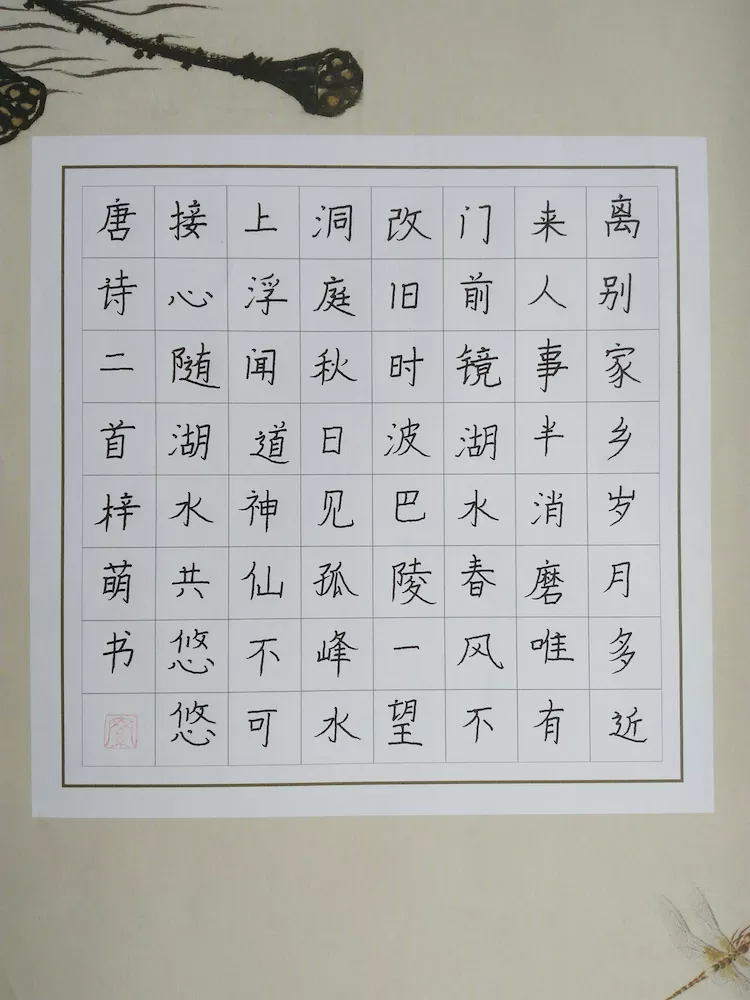 离别家乡岁月多近
来人事半消磨唯有
门前镜湖水春风不
改旧时波巴陵一望
洞庭秋日见孤峰水
上浮闻道神仙不可
接心随湖水共悠悠
唐诗二首梓萌书